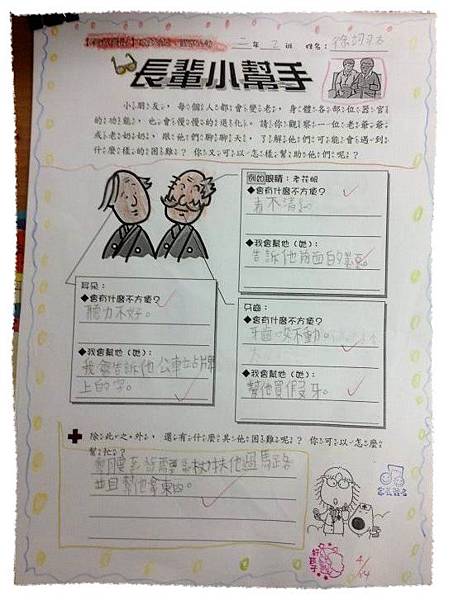 二年2班 姓名：徐
長輩小幫手
小朋友，每個人都會變老，身體各部位器官
的功能，也會慢慢的退化，請你觀察一位老爺爺
或老奶奶，跟他們聊聊天，了解他們可能會遇到
什麼樣的困難？你又可以怎樣幫助他們呢？
例如眼睛：老花眼
◆會有什麼不方便？
看不清
◆我會幫他（她）：
告訴他前面的
耳朵：
◆會有什麼不方便？
聽力不好。
◆我會幫他（她）：
我會告訴他公車站牌
上的字。
牙齒：
◆會有什麼不方便？
牙齒咬不動。
◆我會幫他（她）：
幫他買假牙。
除此之外，還有什麼其他困難呢？你可以怎麼
幫忙？
扶他過馬路
並且幫他拿東西。
好孩子
4/14